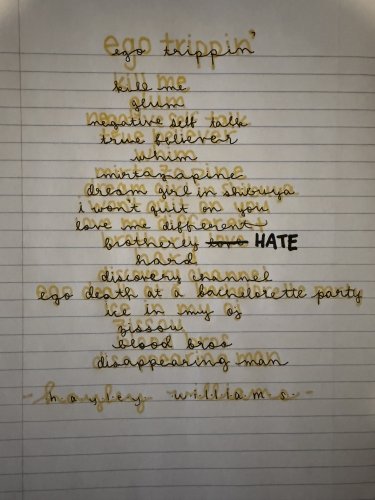 ego trippin'
kill me
glum
negative self talk
true believer
whim
mirtazapine
dream girl in shibuya
i won't quit on you
love me different
brotherly love HATE
hard
discovery channel
ego death at a bachelorette party
ice in my oj
zissou
blood bros
disappearing man
-hayley williams-